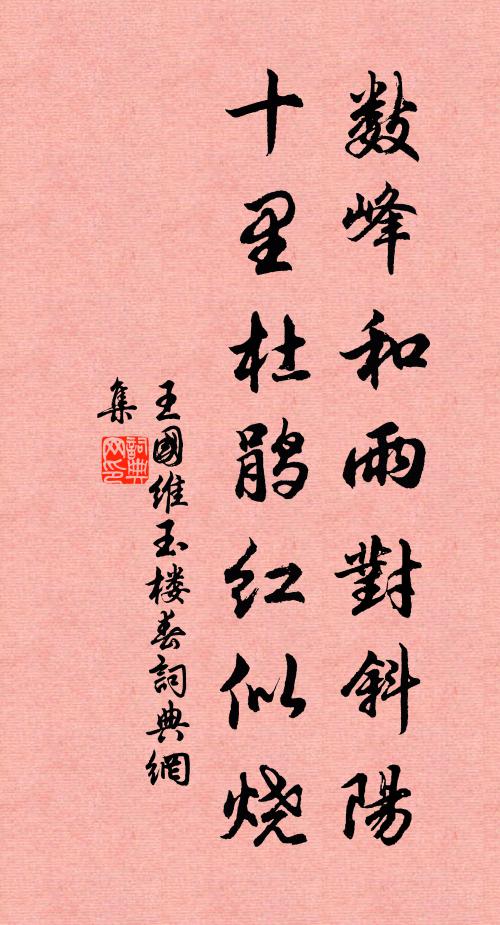 數峰和雨對斜陽
十里杜鹃红似烧
王國维玉楼春詞典網
集
詞典
网印